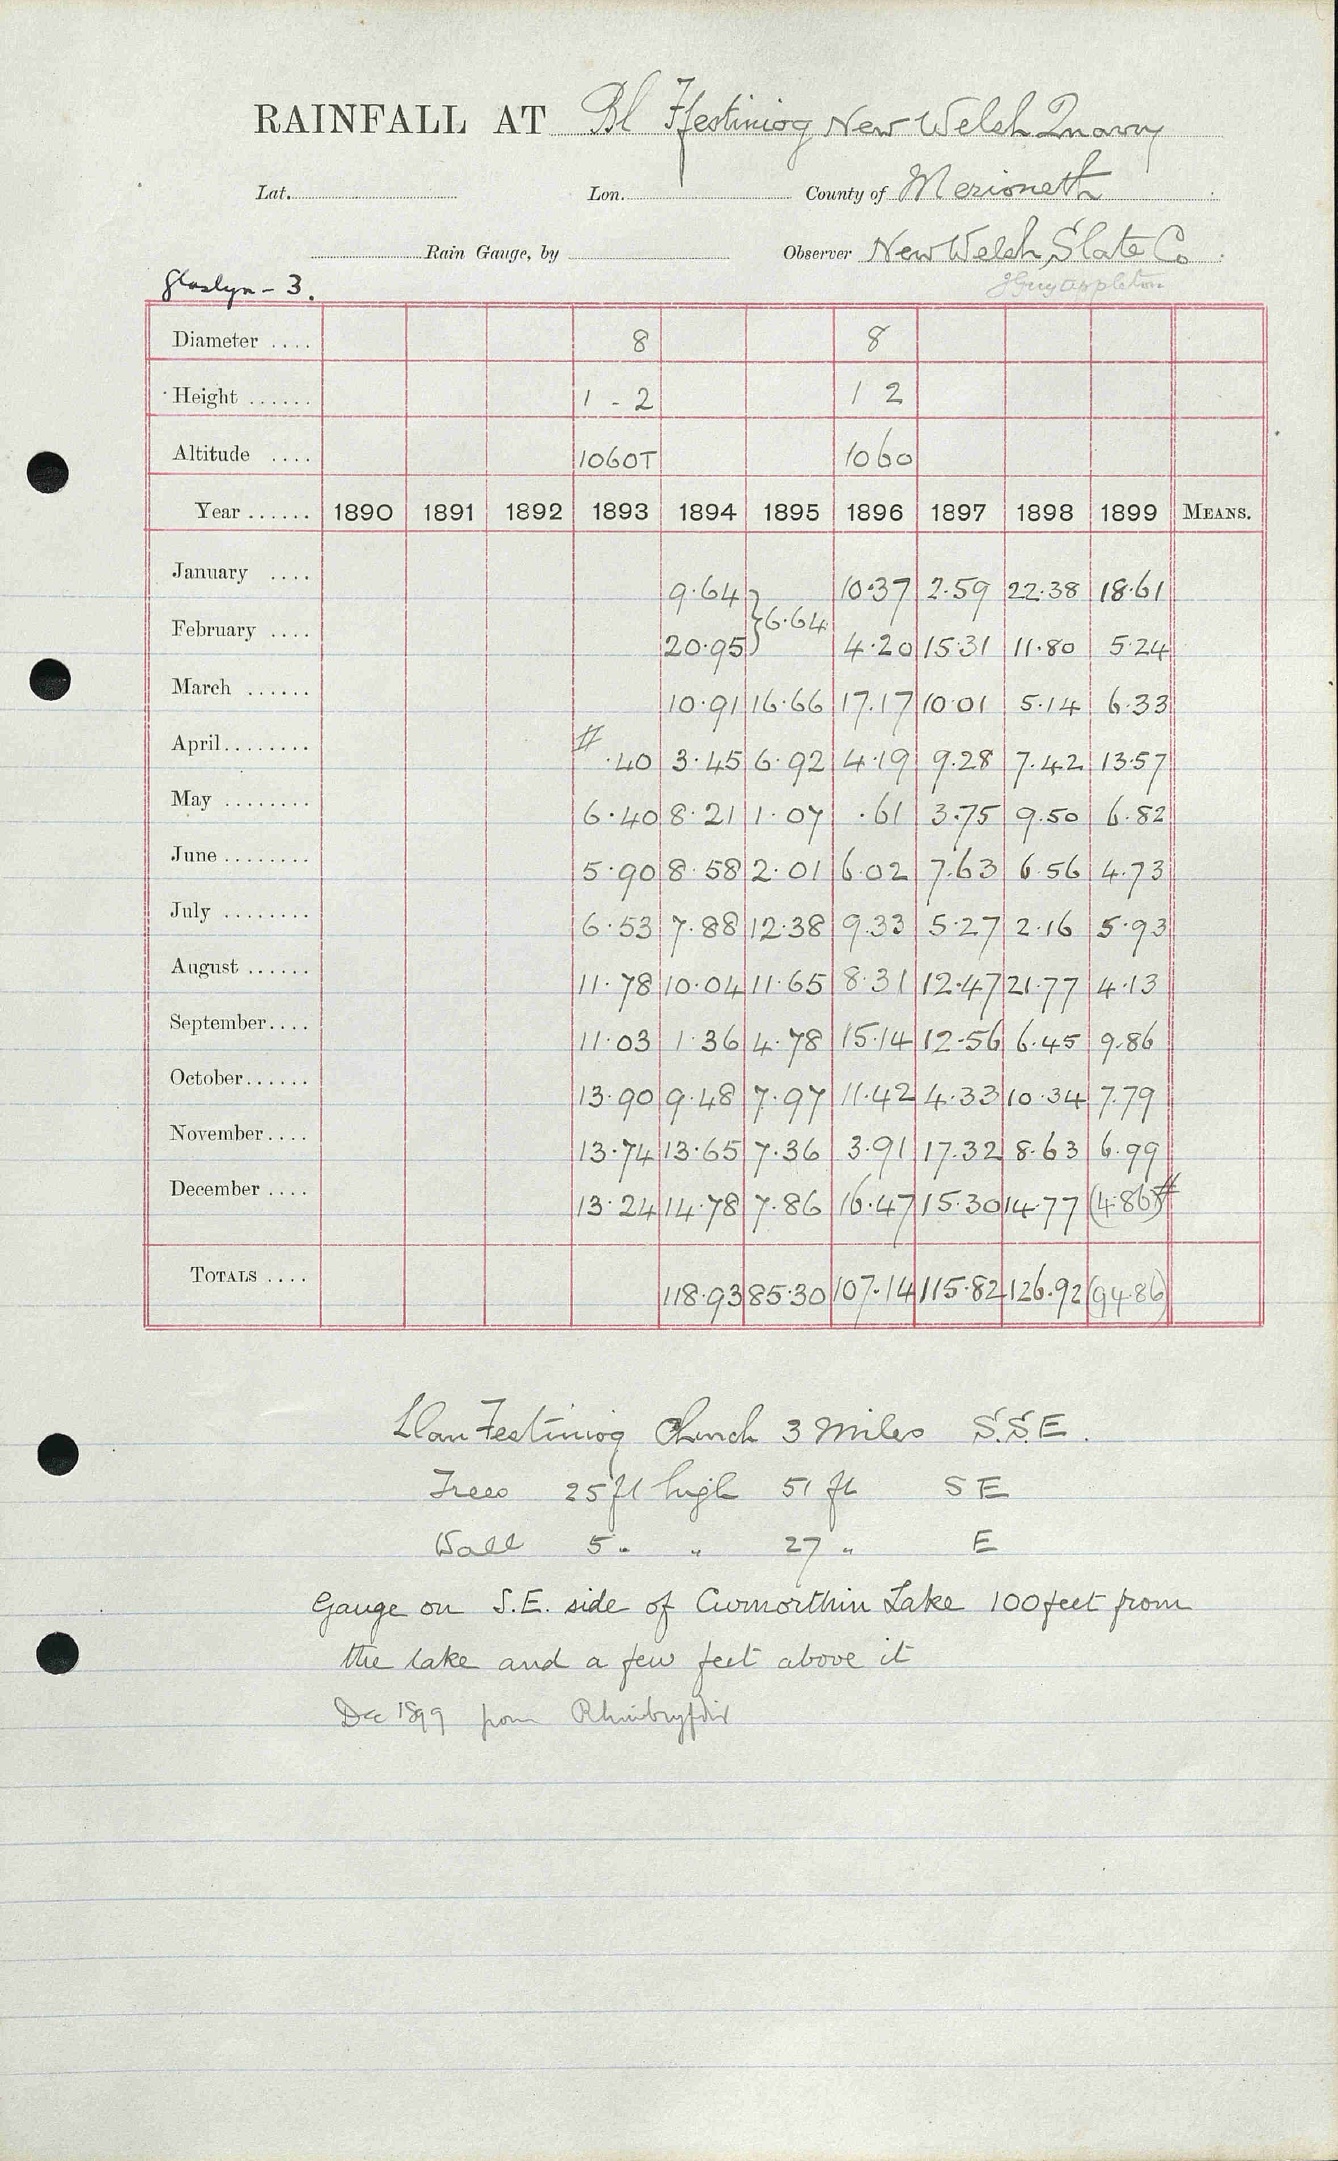 RAINFALL AT Bl Ffestiniog New Welsh Quarry
Lat. Lon. County of Merioneth
Rain Gauge, by Observer New Welsh Slate Co
Glaslyn - 3. J Guy Appleton
Diameter .... 8 8
Height ...... 1 - 2 1 2
Altitude .... 1060T 1060
Year ...... 1890 1891 1892 1893 1894 1895 1896 1897 1898 1899 MEANS.
January .... 9.64 } 10.37 2.59 22.38 18.61
February .... 20.95 } 6.64 4.20 15.31 11.80 5.24
March ...... 10.91 16.66 17.17 10.01 5.14 6.33
April........ # .40 3.45 6.92 4.19 9.28 7.42 13.57
May ........ 6.40 8.21 1.07 .61 3.75 9.50 6.82
June ........ 5.90 8.58 2.01 6.02 7.63 6.56 4.73
July ........ 6.53 7.88 12.38 9.33 5.27 2.16 5.93
August ...... 11.78 10.04 11.65 8.31 12.47 21.77 4.13
September.... 11.03 1.36 4.78 15.14 12.56 6.45 9.86
October...... 13.90 9.48 7.97 11.42 4.33 10.34 7.79
November.... 13.74 13.65 7.36 3.91 17.32 8.63 6.99
December .... 13.24 14.78 7.86 16.47 15.30 14.77 (4.86)#
TOTALS .... 118.93 85.30 107.14 115.82 126.92 (94.86)
Llan Festiniog Church 3 Miles S.S.E.
Trees 25 ft high 51 ft SE
Wall 5 " " 27 " E
Gauge on S.E. side of Cwmorthin Lake 100 feet from
the lake and a few feet above it
Dec 1899 from Rhiwbryfdir